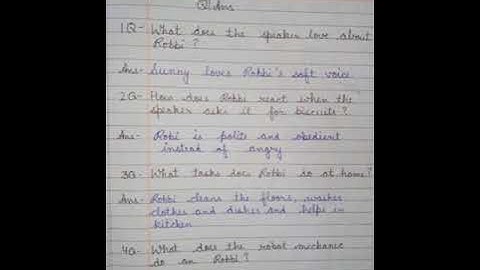 Q/Ans
1Q- What does the speaker love about
Robbi ?
Ans- Sunny loves Robbi's soft voice
2Q- How does Robbi react when the
speaker asks it for biscuits ?
Ans- Robi is polite and obedient
instead of angry
3Q- What tasks does Robbi so at home ?
Ans- Robbi cleans the floors, washes
clothes and dishes and helps in
kitchen
4Q- What does the robot mechanic
do on Robbi ?